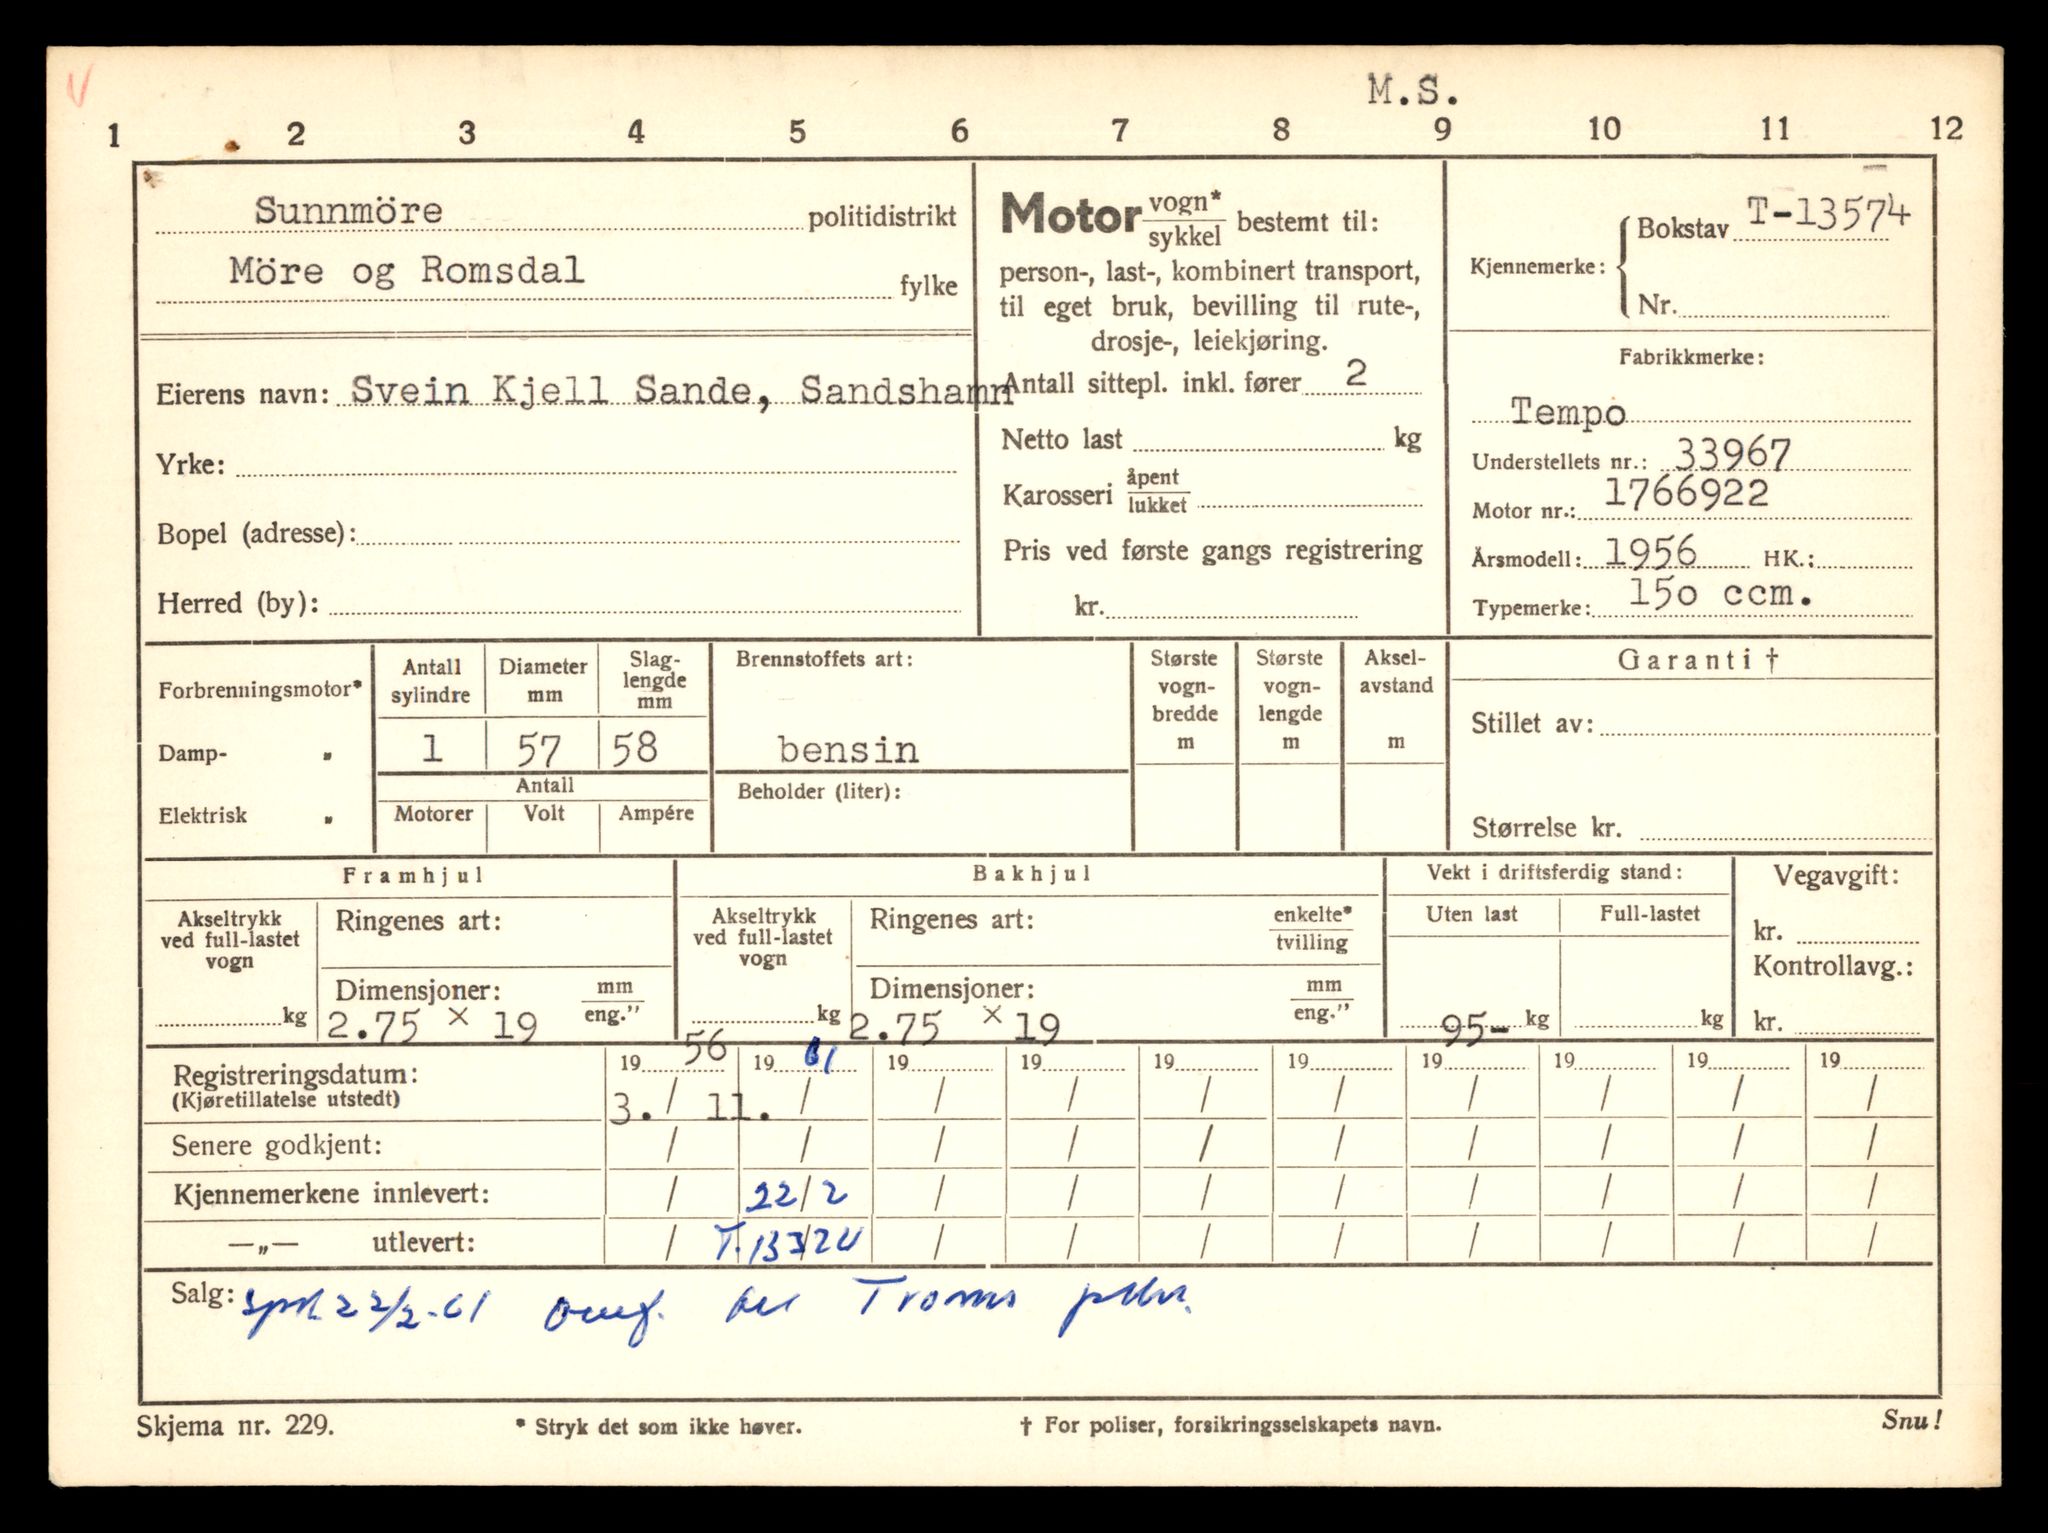 V
M.S.
1 2 3 4 5 6 7 8 9 10 11 12
Sunnmöre politidistrikt
Möre og Romsdal fylke
Eierens navn: Svein Kjell Sande, Sandshamn
Yrke:
Bopel (adresse):
Herred (by):
Motor vogn* / sykkel bestemt til:
person-, last-, kombinert transport,
til eget bruk, bevilling til rute-,
drosje-, leiekjøring.
Antall sittepl. inkl. fører 2
Netto last kg
Karosseri åpent / lukket
Pris ved første gangs registrering
kr.
Kjennemerke: Bokstav T-13574
Nr.
Fabrikkmerke:
Tempo
Understellets nr.: 33967
Motor nr.: 1766922
Årsmodell: 1956 HK.:
Typemerke: 150 ccm.
Forbrenningsmotor*
Damp- „
Elektrisk „
Antall sylindre Diameter mm Slag-lengde mm
1 57 58
Antall
Motorer Volt Ampére
Brennstoffets art:
bensin
Beholder (liter):
Største vogn-bredde m
Største vogn-lengde m
Aksel-avstand m
Garanti †
Stillet av:
Størrelse kr.
Framhjul
Akseltrykk ved full-lastet vogn
kg
Ringenes art:
Dimensjoner: mm / eng."
2.75 × 19
Bakhjul
Akseltrykk ved full-lastet vogn
kg
Ringenes art: enkelte* / tvilling
Dimensjoner: mm / eng."
2.75 × 19
Vekt i driftsferdig stand:
Uten last Full-lastet
95- kg kg
Vegavgift:
kr.
Kontrollavg.:
kr.
19 56 19 61 19 19 19 19 19 19 19 19
Registreringsdatum:
(Kjøretillatelse utstedt)
3. / 11. / / / / / / / / /
Senere godkjent: / / / / / / / / / /
Kjennemerkene innlevert: / 22/2 / / / / / / / /
—„— utlevert: / T.13324 / / / / / / / /
Salg: 22/2-61 til Troms
Skjema nr. 229. * Stryk det som ikke høver. † For poliser, forsikringsselskapets navn. Snu!